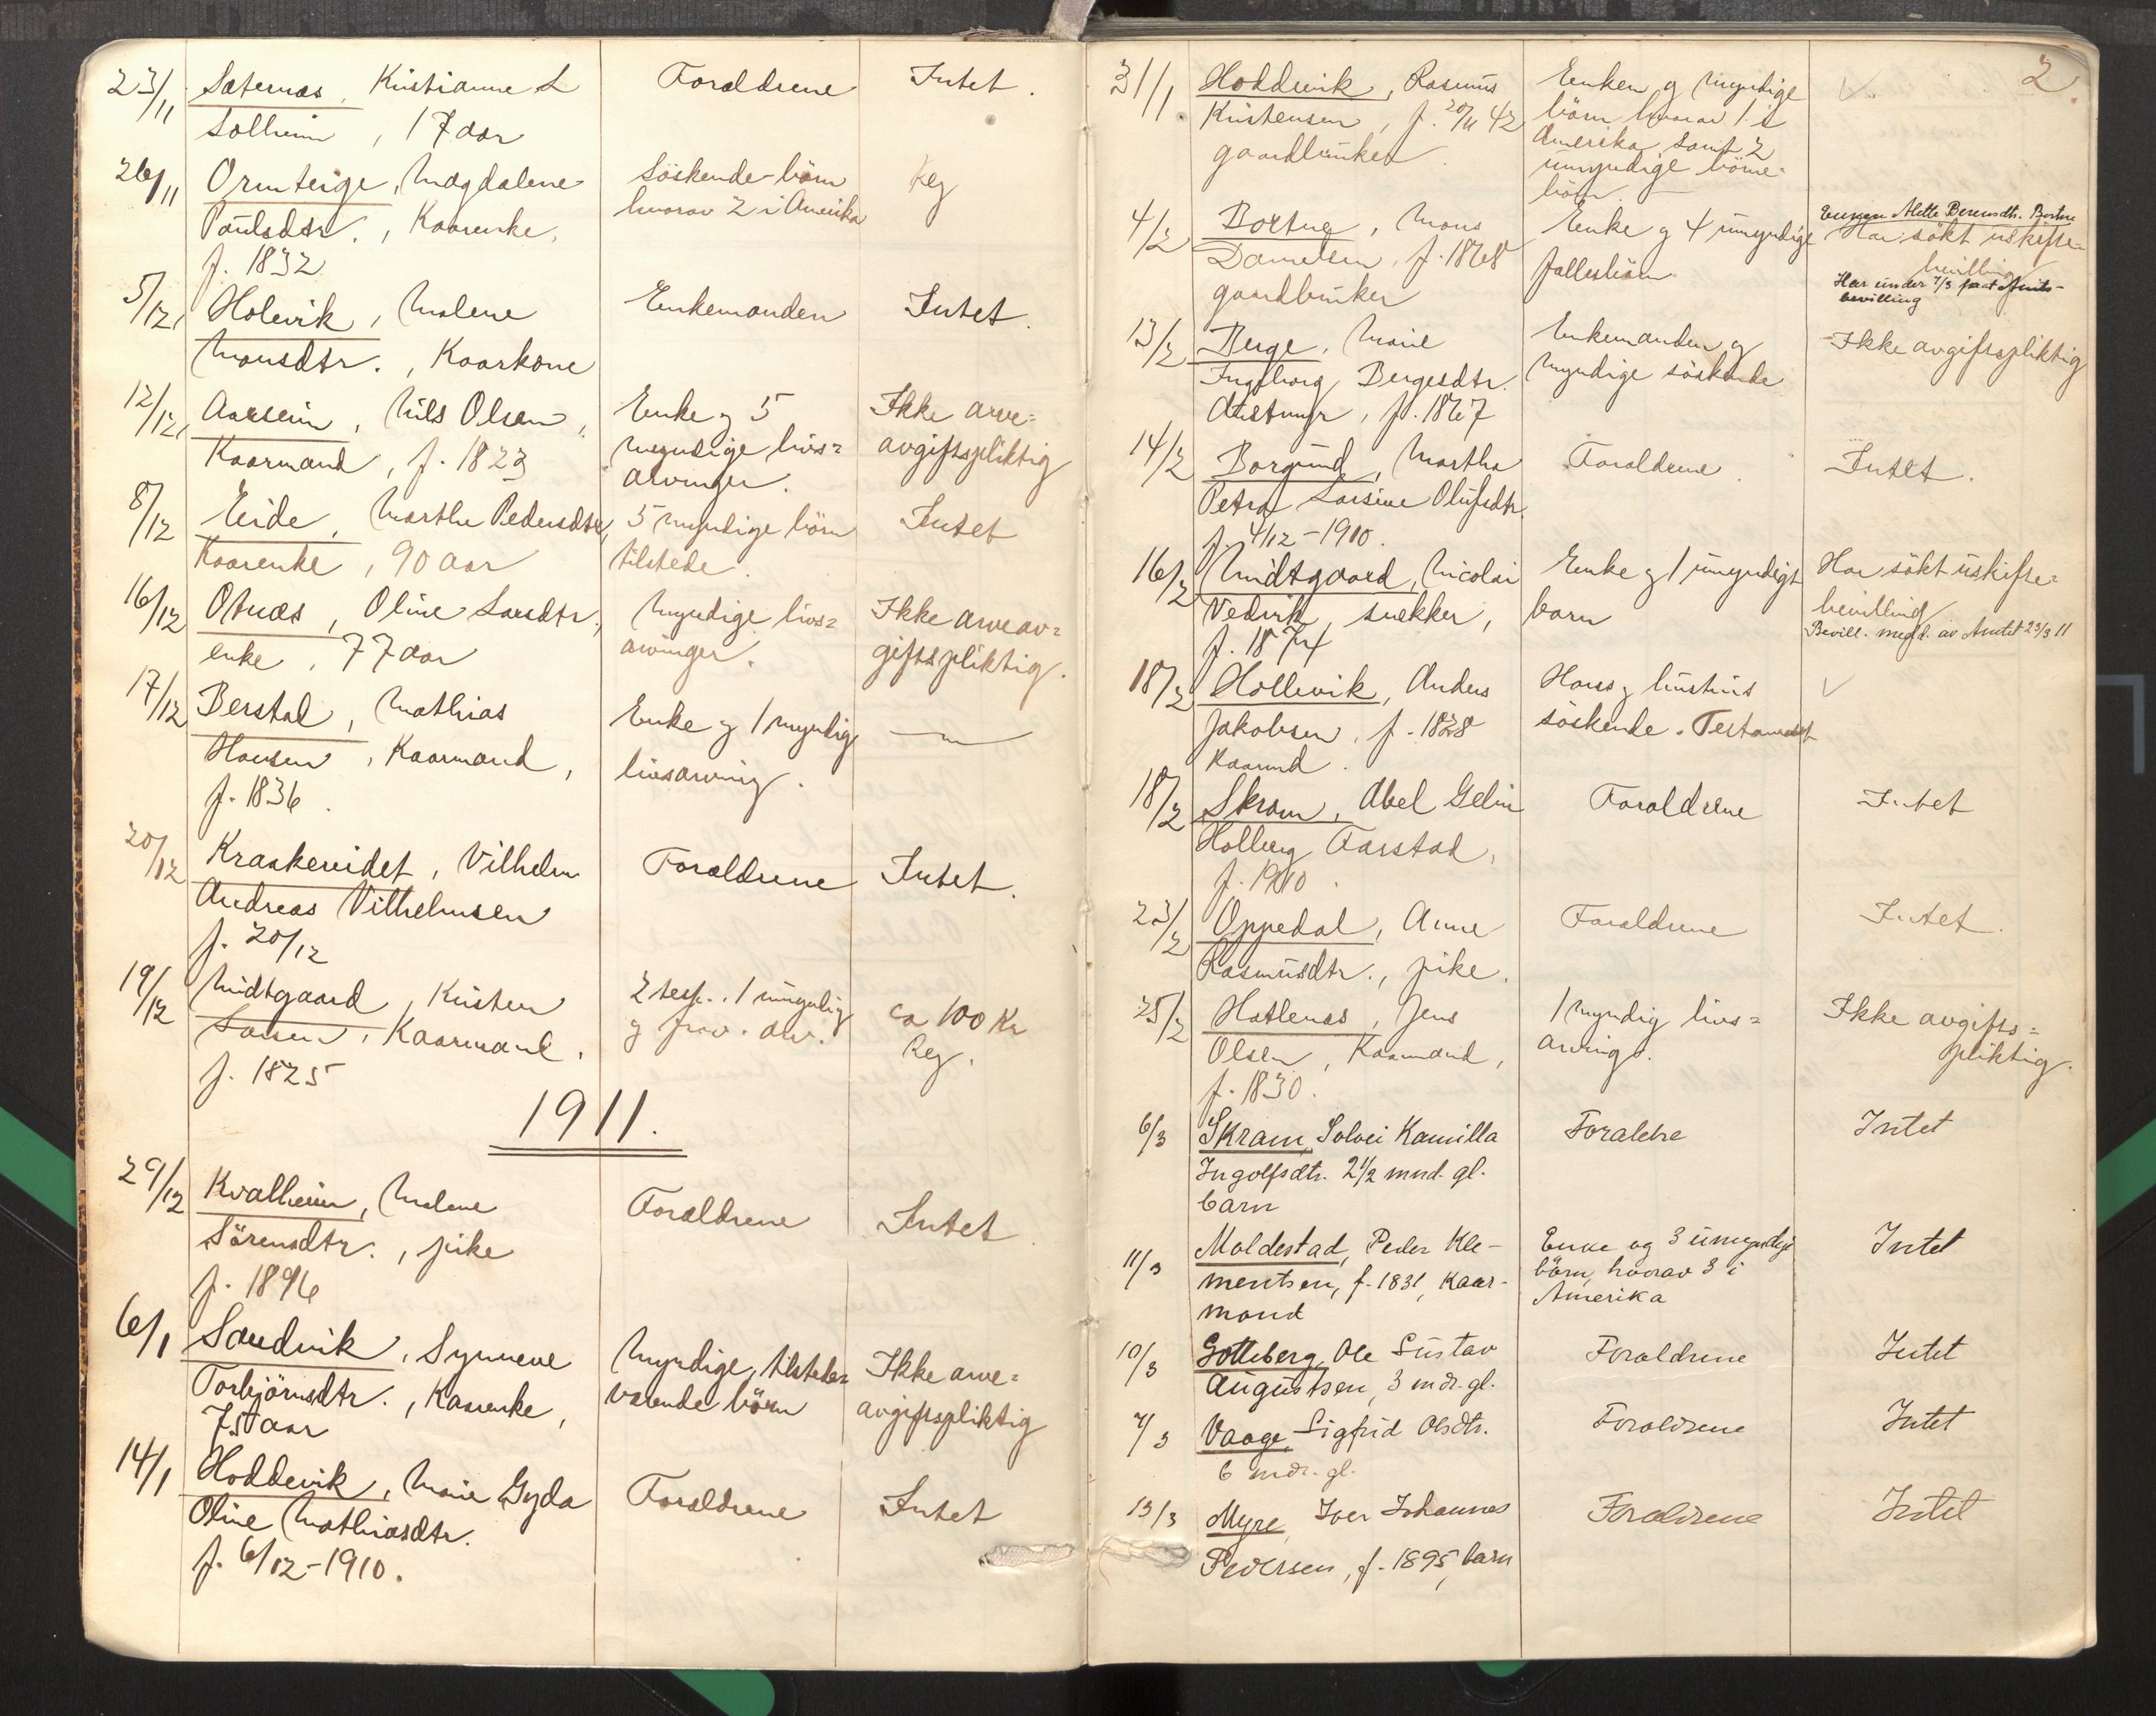 23/11 Sæternæs, Kristianne L Forældrene Intet.
Solheim, 17 aar
26/11 Ormteige, Magdalene Söskende-börn Reg
Poulsdtr., Kaarenke, hvorav 2 i Amerika
f. 1832
5/12 Holevik, Malene Enkemanden Intet.
Monsdtr., Kaarkone
12/12 Aarseim, Nils Olsen, Enke og 5 Ikke arve=
Kaarmand, f. 1823 myndige livs= avgiftspliktig
arvinger.
8/12 Eide, Marthe Pedersdtr, 5 myndige börn Intet
Kaarenke, 90 aar tilstede.
16/12 Otnæs, Oline Larsdtr., Myndige livs= Ikke arveav=
enke, 77 aar arvinger. giftspliktig.
17/12 Berstad, Mathias Enke og 1 myndig —
Hansen, Kaarmand, livsarving.
f. 1836.
20/12 Kraakereidet, Vilhelm Forældrene Intet.
Andreas Vilhelmsen
f. 20/12
19/12 Midtgaard, Kristen 2 test., 1 umyndig ca 100 Kr
Larsen, Kaarmand. og frav. arv. Reg.
f. 1825
1911.
29/12 Kvalheim, Malene Forældrene Intet
Sörensdtr., pike
f. 1896
6/1 Sandvik, Synneve Myndige, tilstede= Ikke arve=
Torbjörnsdtr., Kaarenke, værende börn avgiftspliktig
75 aar
14/1 Hoddevik, Marie Gyda Forældrene Intet
Oline Mathiasdtr.
f. 6/12-1910.
2.
31/1 Hoddevik, Rasmus Enken og myndige
Kristensen, f. 20/11 42 börn hvorav 1 i
gaardbruker. Amerika samt 2
umyndige börne-
börn.
4/2 Bortne, Mons Enke og 4 umyndige Enken Alette Berendtr. Bortne
Danielsen, f. 1868 fællesbörn Har sökt uskifte=
gaardbruker bevilling
Har under 7/3 faat Amts-
bevilling
13/2 Berge, Marie Enkemanden og Ikke avgiftspliktig
Ingeborg Bergesdtr. myndige söskende
f. 1867
14/2 Borgund, Martha Forældrene Intet.
Petra Larsine Olufsdtr.
f. 4/12-1910.
16/2 Midtgaard, Nicolai Enke og 1 umyndigt Har sökt uskifte=
Vedvik, snekker, barn bevilling
f. 1874 Bevill. medd. av Amtet 23/3 11
18/2 Hollevik, Anders Hans og hustrus
Jakobsen, f. 1828 söskende. Testament
Kaarmd.
18/2 Skram, Abel Gelin Forældrene Intet
Holberg Farstad,
f. 1910.
23/2 Oppedal, Anne Forældrene Intet.
Rasmusdtr., pike.
25/2 Hatlenæs, Jens 1 myndig livs= Ikke avgifts=
Olsen, Kaarmand, arving. pliktig.
f. 1830.
6/3 Skram, Solvei Kamilla Forældre Intet
Ingolfsdtr. 2½ mnd. gl.
barn
11/3 Moldestad, Peder Kle- Enke og 3 umyndige Intet
mentsen, f. 1831, Kaar- börn, hvorav 3 i
mand Amerika
10/3 Gotteberg, Ole Gustav Forældrene Intet
Augustsen, 3 mdr. gl.
7/3 Vaage, Sigfrid Olsdtr. Forældrene Intet
6 mdr. gl.
13/3 Myre, Iver Johannes Forældrene Intet
Pedersen, f. 1895, barn